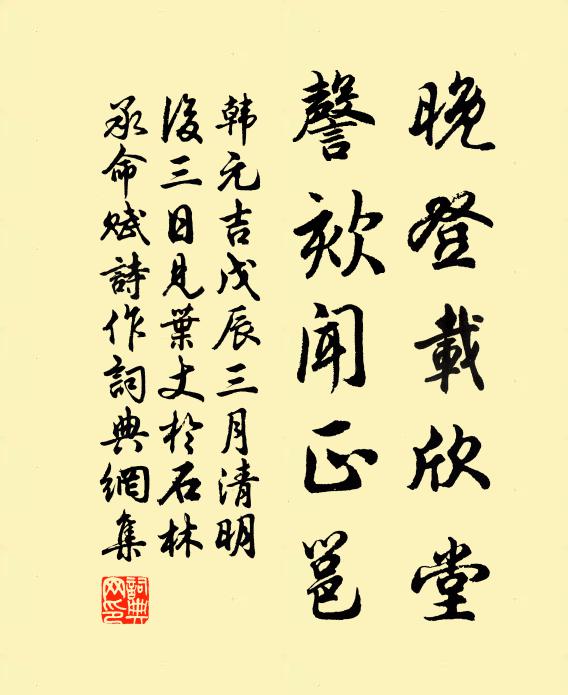 晚登載欣堂
謦欬聞正邕
韩元吉戊辰三月清明
後三日見葉丈於石林
承命賦詩作詞典網集
詞典网印